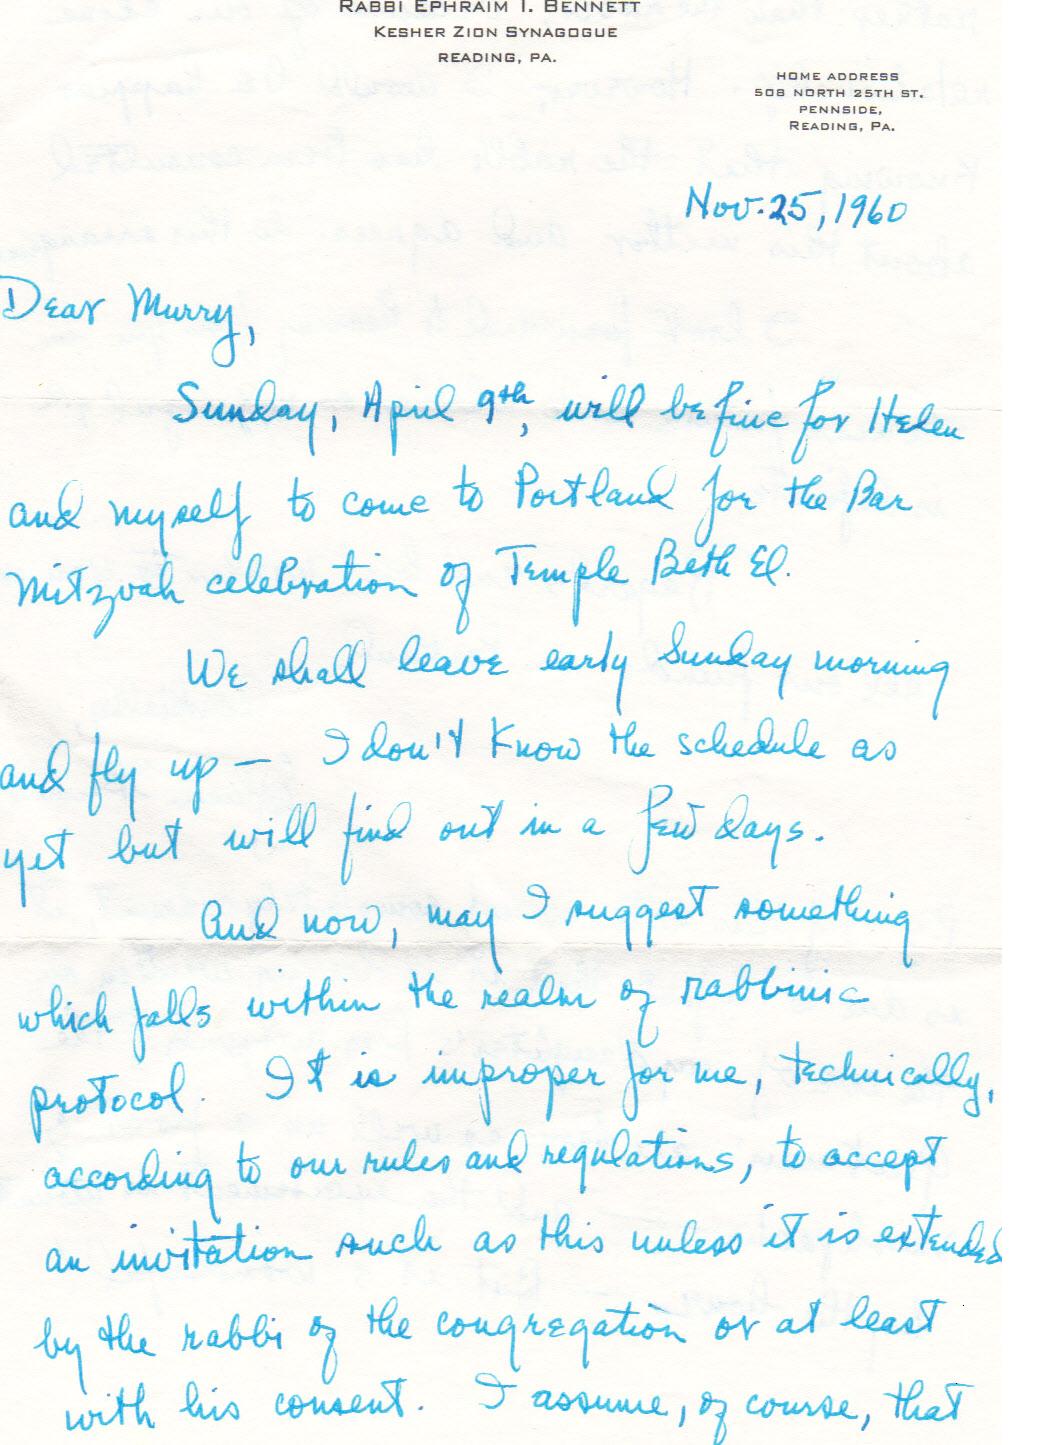 RABBI EPHRAIM I. BENNETT
KESHER ZION SYNAGOGUE
READING, PA.
HOME ADDRESS
508 NORTH 25TH ST.
PENNSIDE,
READING, PA.
Nov. 25, 1960
Dear Murry,
Sunday, April 9th, will be fine for Helen
and myself to come to Portland for the Bar
Mitzvah celebration of Temple Beth El.
We shall leave early Sunday morning
and fly up — I don't know the schedule as
yet but will find out in a few days.
And now, may I suggest something
which falls within the realm of rabbinic
protocol. It is improper for me, technically,
according to our rules and regulations, to accept
an invitation such as this unless it is extended
by the rabbi of the congregation or at least
with his consent. I assume, of course, that